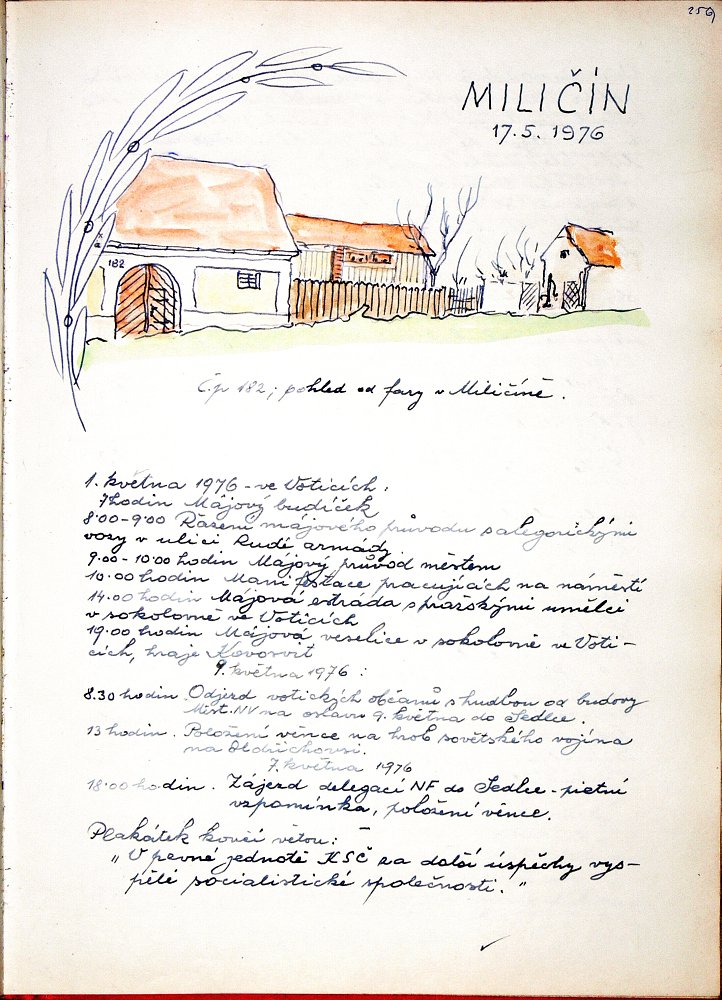 256)
MILIČÍN
17.5. 1976
182
Čp 182; pohled od fary v Miličíně.
1. května 1976 - ve Voticích:
7 hodin Májový budíček
8.00-9.00 Řazení májového průvodu s alegorickými
vozy v ulici Rudé armády
9.00 - 10.00 hodin Májový průvod městem
10.00 hodin Manifestace pracujících na náměstí
14.00 hodin Májová estráda s pražskými umělci
v sokolovně ve Voticích
19.00 hodin Májová veselice v sokolovně ve Voti-
cích, hraje Kovorvit
9. května 1976:
8.30 hodin Odjezd votických občanů s hudbou od budovy
Měst. NV na oslavu 9. května do Sedlce.
13 hodin. Položení věnce na hrob sovětského vojína
na Oldřichovsi.
7. května 1976
18.00 hodin. Zájezd delegací NF do Sedlce - pietní
vzpomínka, položení věnce.
Plakátek končí větou:
„V pevné jednotě KSČ za další úspěchy vys-
pělé socialistické společnosti."